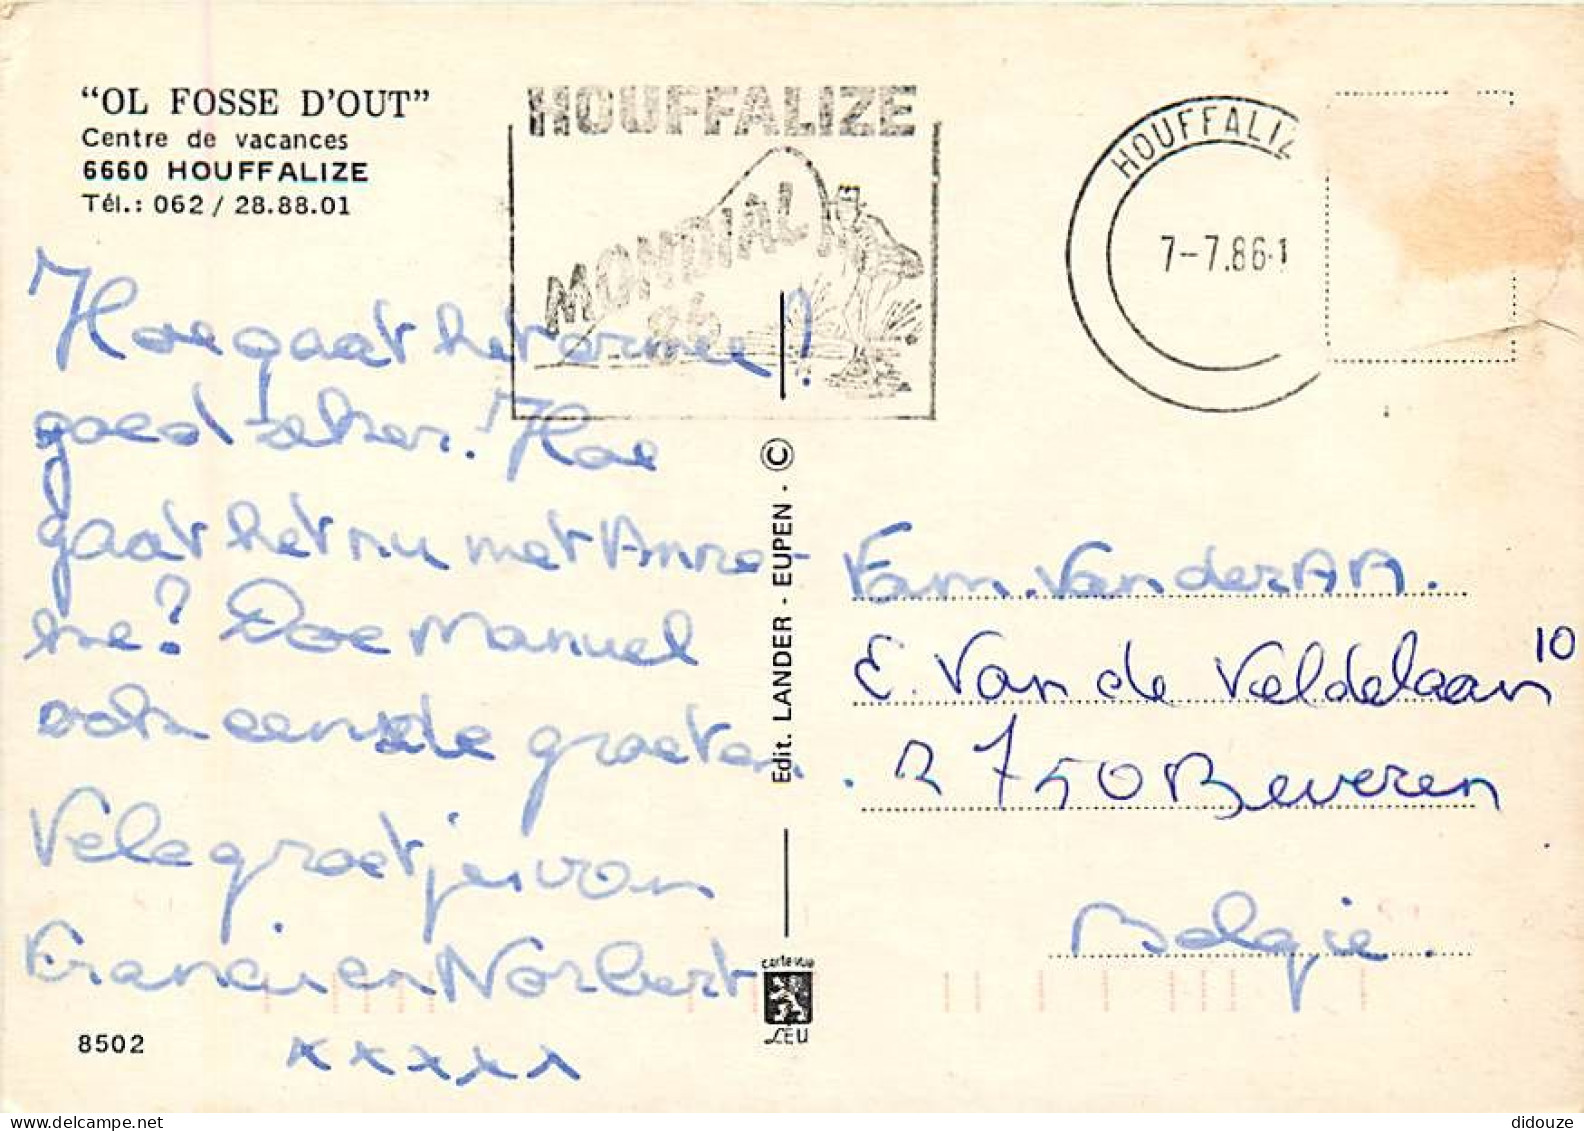 "OL FOSSE D'OUT"
Centre de vacances
6660 HOUFFALIZE
Tél.: 062 / 28.88.01
HOUFFALIZE
MONDIAL
86
HOUFFALIZ
7-7.86-1
Hoe gaat het ermee!
goed zeker. Hoe
gaat het nu met Anne-
ke? Doe Manuel
ook eens de groeten
Vele groetjes van
Francien Norbert
xxxxx
8502
Edit. LANDER - EUPEN - ©
carte vue
LEU
Fam. Van der AA.
E. Van de Veldelaan 10
2750 Beveren
België.
didouze